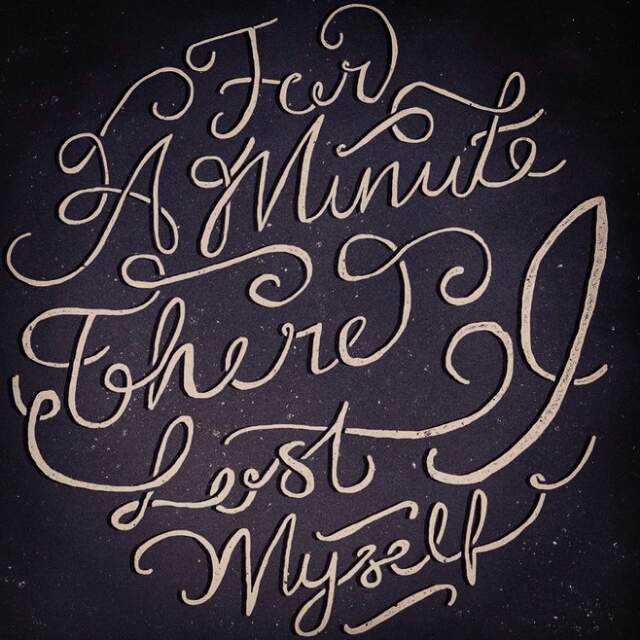 For
A Minute
There I
Lost
Myself